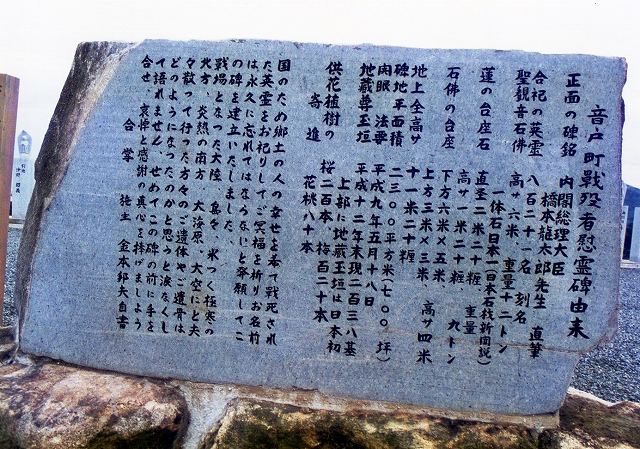 音戸町戦没者慰霊碑由来
正面の碑銘 内閣総理大臣
橋本龍太郎先生 直筆
合祀の英霊 八百二十一名 刻名
聖観音石佛 高サ六米 重量十二トン
一体石日本一(日本石材新聞説)
蓮の台座石 直茎二米二十糎 重量
高サ一米二十糎 九トン
石佛の台座 下方六米×五米
上方三米×三米、高サ四米
地上全高サ 十一米二十糎
碑地平面積 二三〇〇平方米(七〇〇坪)
開眼法要 平成九年五月十八日
地蔵尊玉垣 平成十二年末現二百三八基
上部に地蔵玉垣は日本初
供花植樹の 桜二百本、梅百二十本
寄進 花桃八十本
国のため郷土の人の幸せを希て戦死され
た英霊をお祀りしてご冥福を祈りお名前
は永久に忘れてはならないと発願してこ
の碑を建立いたしました。
戦場となった大陸、島々、氷つく極寒の
北方、炎熱の南方、大海原、大空にと夫
々散って行った方々のご遺体やご遺骨は
どのようになったのかと思うと涙なくし
て語れません、せめてこの碑の前に手を
合せ、哀悼と感謝の真心を捧げましよう
合掌
施主 金本邦夫自書